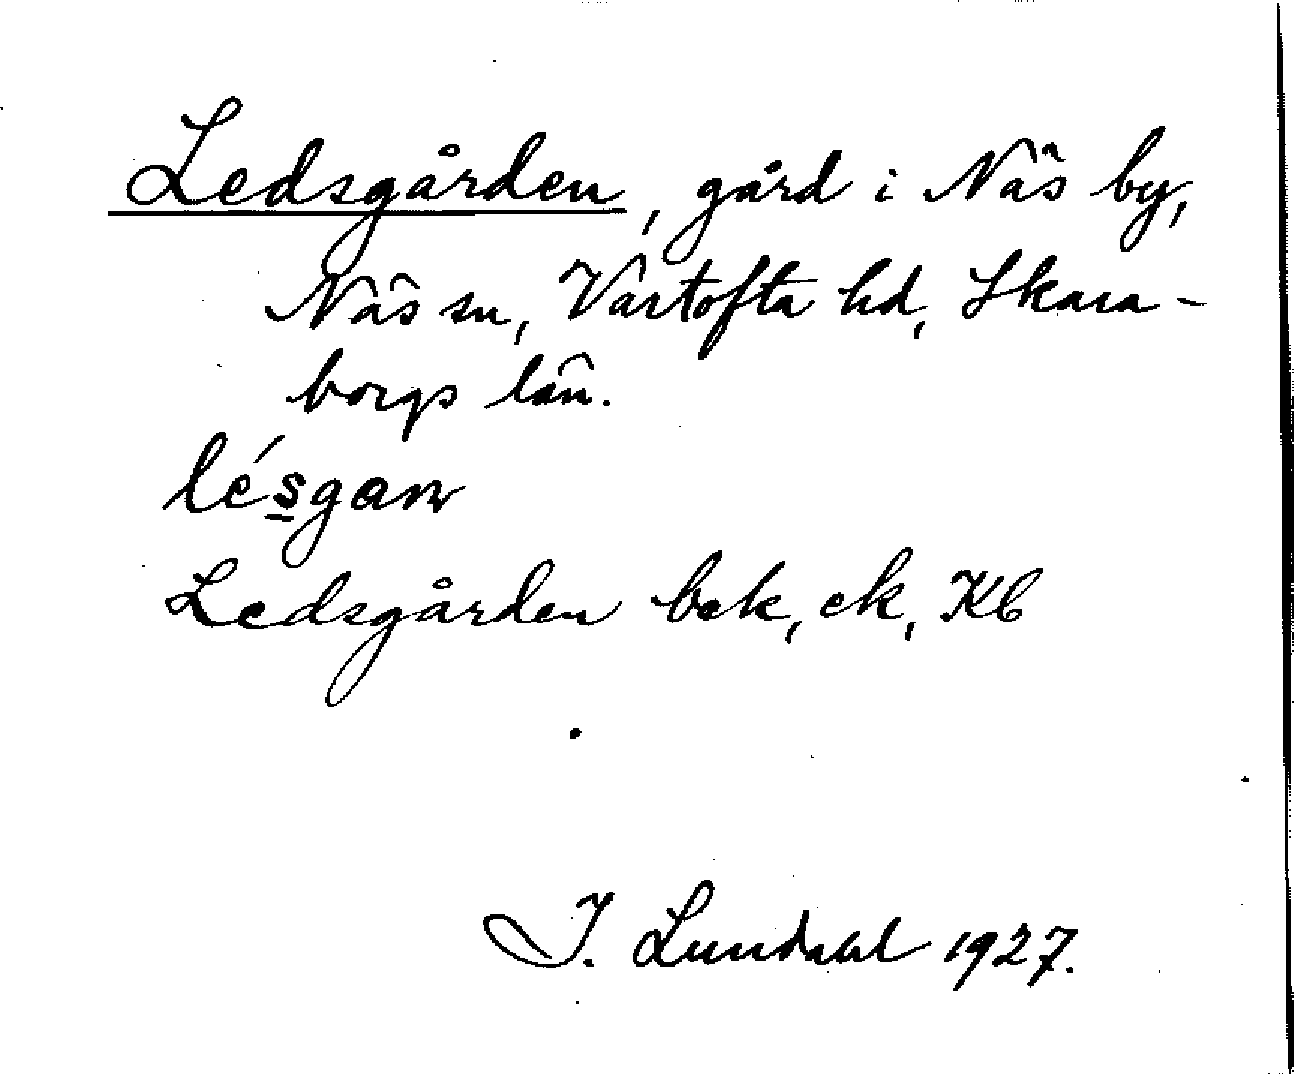 Ledsgården, gård i Näs by,
Näs sn, Vartofta hd, Skara-
borgs län.
lésgan
Ledsgården bek, ek, Kb
I. Lundahl 1927.